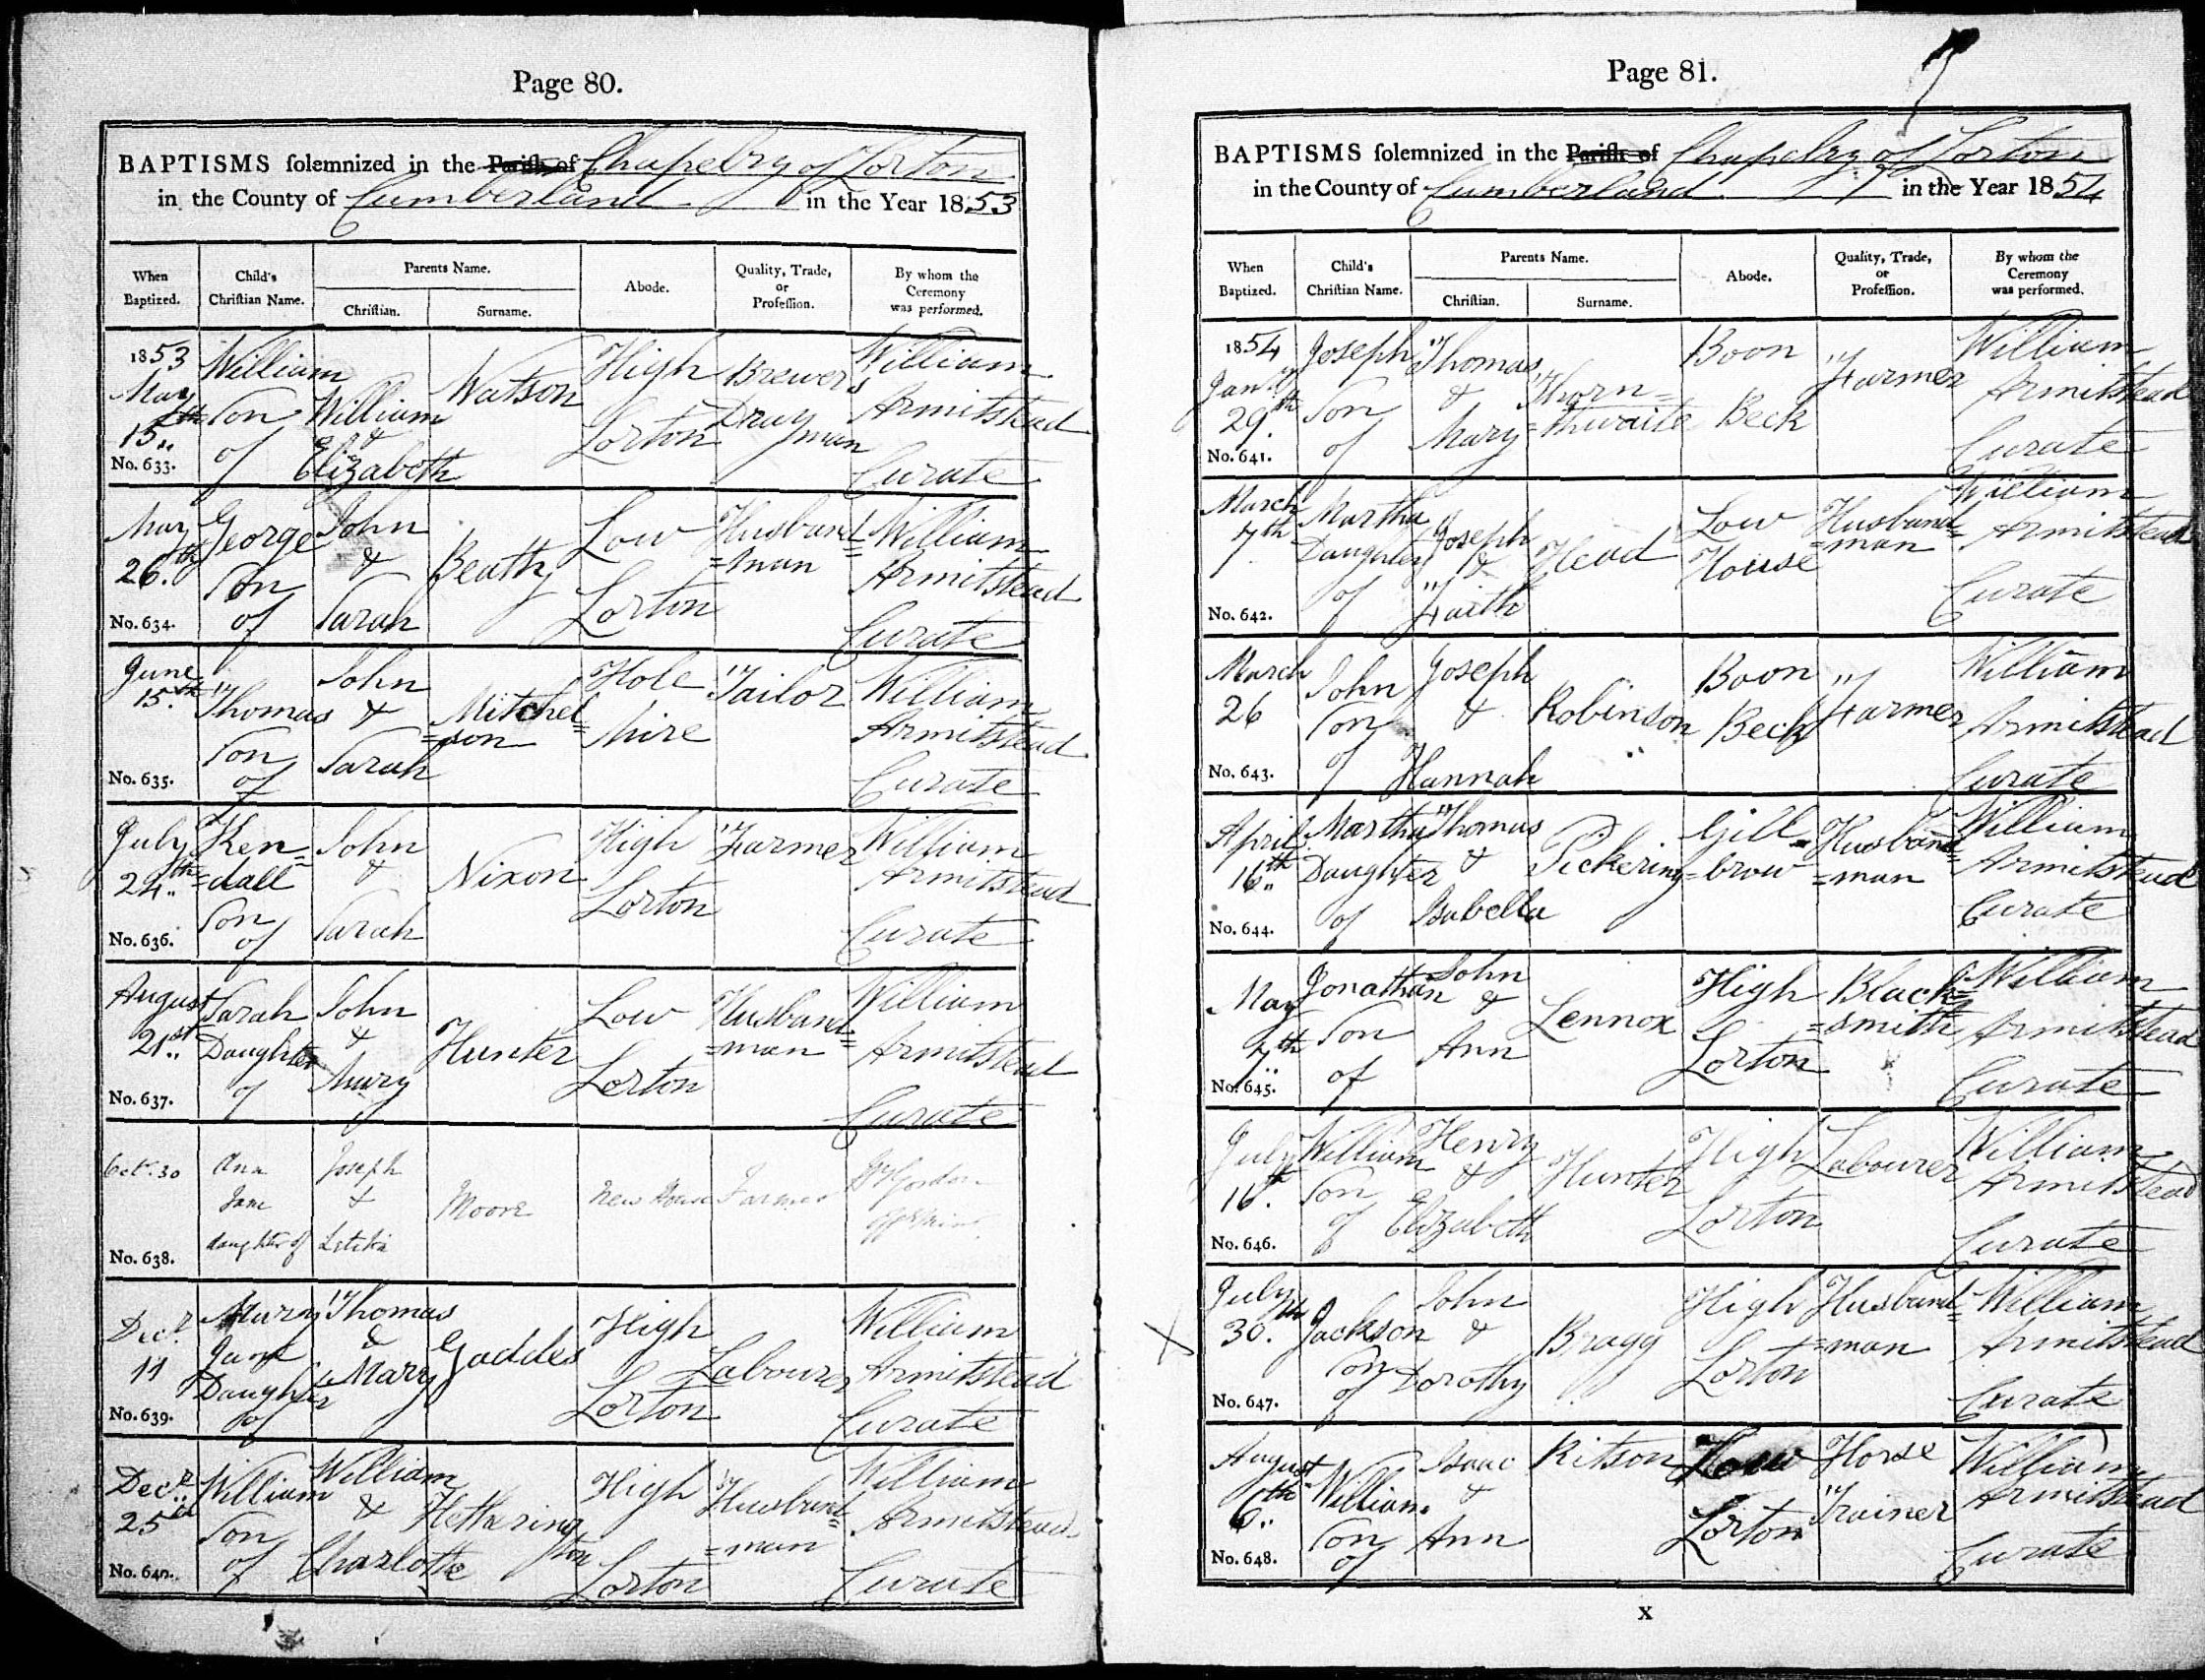 Page 80.
BAPTISMS solemnized in the Parish of Chapelry of Lorton
in the County of Cumberland in the Year 1853
When Baptized.
Child's Christian Name.
Parents Name.
Christian.
Surname.
Abode.
Quality, Trade, or Profession.
By whom the Ceremony was performed.
1853 May 15th William Son of William & Elizabeth Watson High Lorton Brewers Dray man William Armitstead Curate
No. 633.
May 26th George Son of John & Sarah Beatty Low Lorton Husband=man William Armitstead Curate
No. 634.
June 15th Thomas Son of John & Sarah Mitchel=son Hole Mire Tailor William Armitstead Curate
No. 635.
July 24th Ken=dall Son of John & Sarah Nixon High Lorton Farmer William Armitstead Curate
No. 636.
August 21st Sarah Daughter of John & Mary Hunter Low Lorton Husband=man William Armitstead Curate
No. 637.
Octr. 30 Ann Jane daughter of Joseph & Letitia Moore New House Farmer Gordon
No. 638.
Decr. 11 Mary Jane Daughter of Thomas & Mary Gaddes High Lorton Labourer William Armitstead Curate
No. 639.
Decr. 25th William Son of William & Charlotte Hetherington High Lorton Husband=man William Armitstead Curate
No. 640.
Page 81.
BAPTISMS solemnized in the Parish of Chapelry of Lorton
in the County of Cumberland in the Year 1854
When Baptized.
Child's Christian Name.
Parents Name.
Christian.
Surname.
Abode.
Quality, Trade, or Profession.
By whom the Ceremony was performed.
1854 Jany 29th Joseph Son of Thomas & Mary Thorn=thwaite Boon Beck Farmer William Armitstead Curate
No. 641.
March 7th Martha Daughter of Joseph & Faith Head Low House Husband=man William Armitstead Curate
No. 642.
March 26 John Son of Joseph & Hannah Robinson Boon Beck Farmer William Armitstead Curate
No. 643.
April 16th Martha Daughter of Thomas & Isabella Pickering Gill=brow Husband=man William Armitstead Curate
No. 644.
May 7th Jonathan Son of John & Ann Lennox High Lorton Black=smith William Armitstead Curate
No. 645.
July 16th William Son of Henry & Elizabeth Hunter High Lorton Labourer William Armitstead Curate
No. 646.
X July 30th Jackson Son of John & Dorothy Bragg High Lorton Husband=man William Armitstead Curate
No. 647.
August 6th William Son of Isaac & Ann Ritson Low Lorton Horse Trainer William Armitstead Curate
No. 648.
X